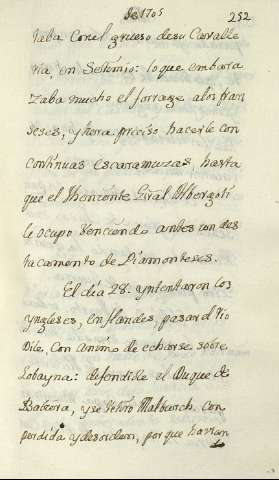 de 1705
252
taba con el grueso de su Cavalle
ria, en Setimio: lo que embara
zaba mucho el forrage alos fran
seses, y hera preciso hacerle con
continuas escaramuzas, hasta
que el theniente Gral Albergoti
le ocupo venciendo antes un des
tacamento de Piamonteses.
El dia 28. yntentaron los
yngleses, en flandes, pasar el rio
Dile, con animo de echarse sobre
Lobayna: defendiole el Duque de
Babiera, y se retiro Malburch. con
perdida y desorden, por que havian